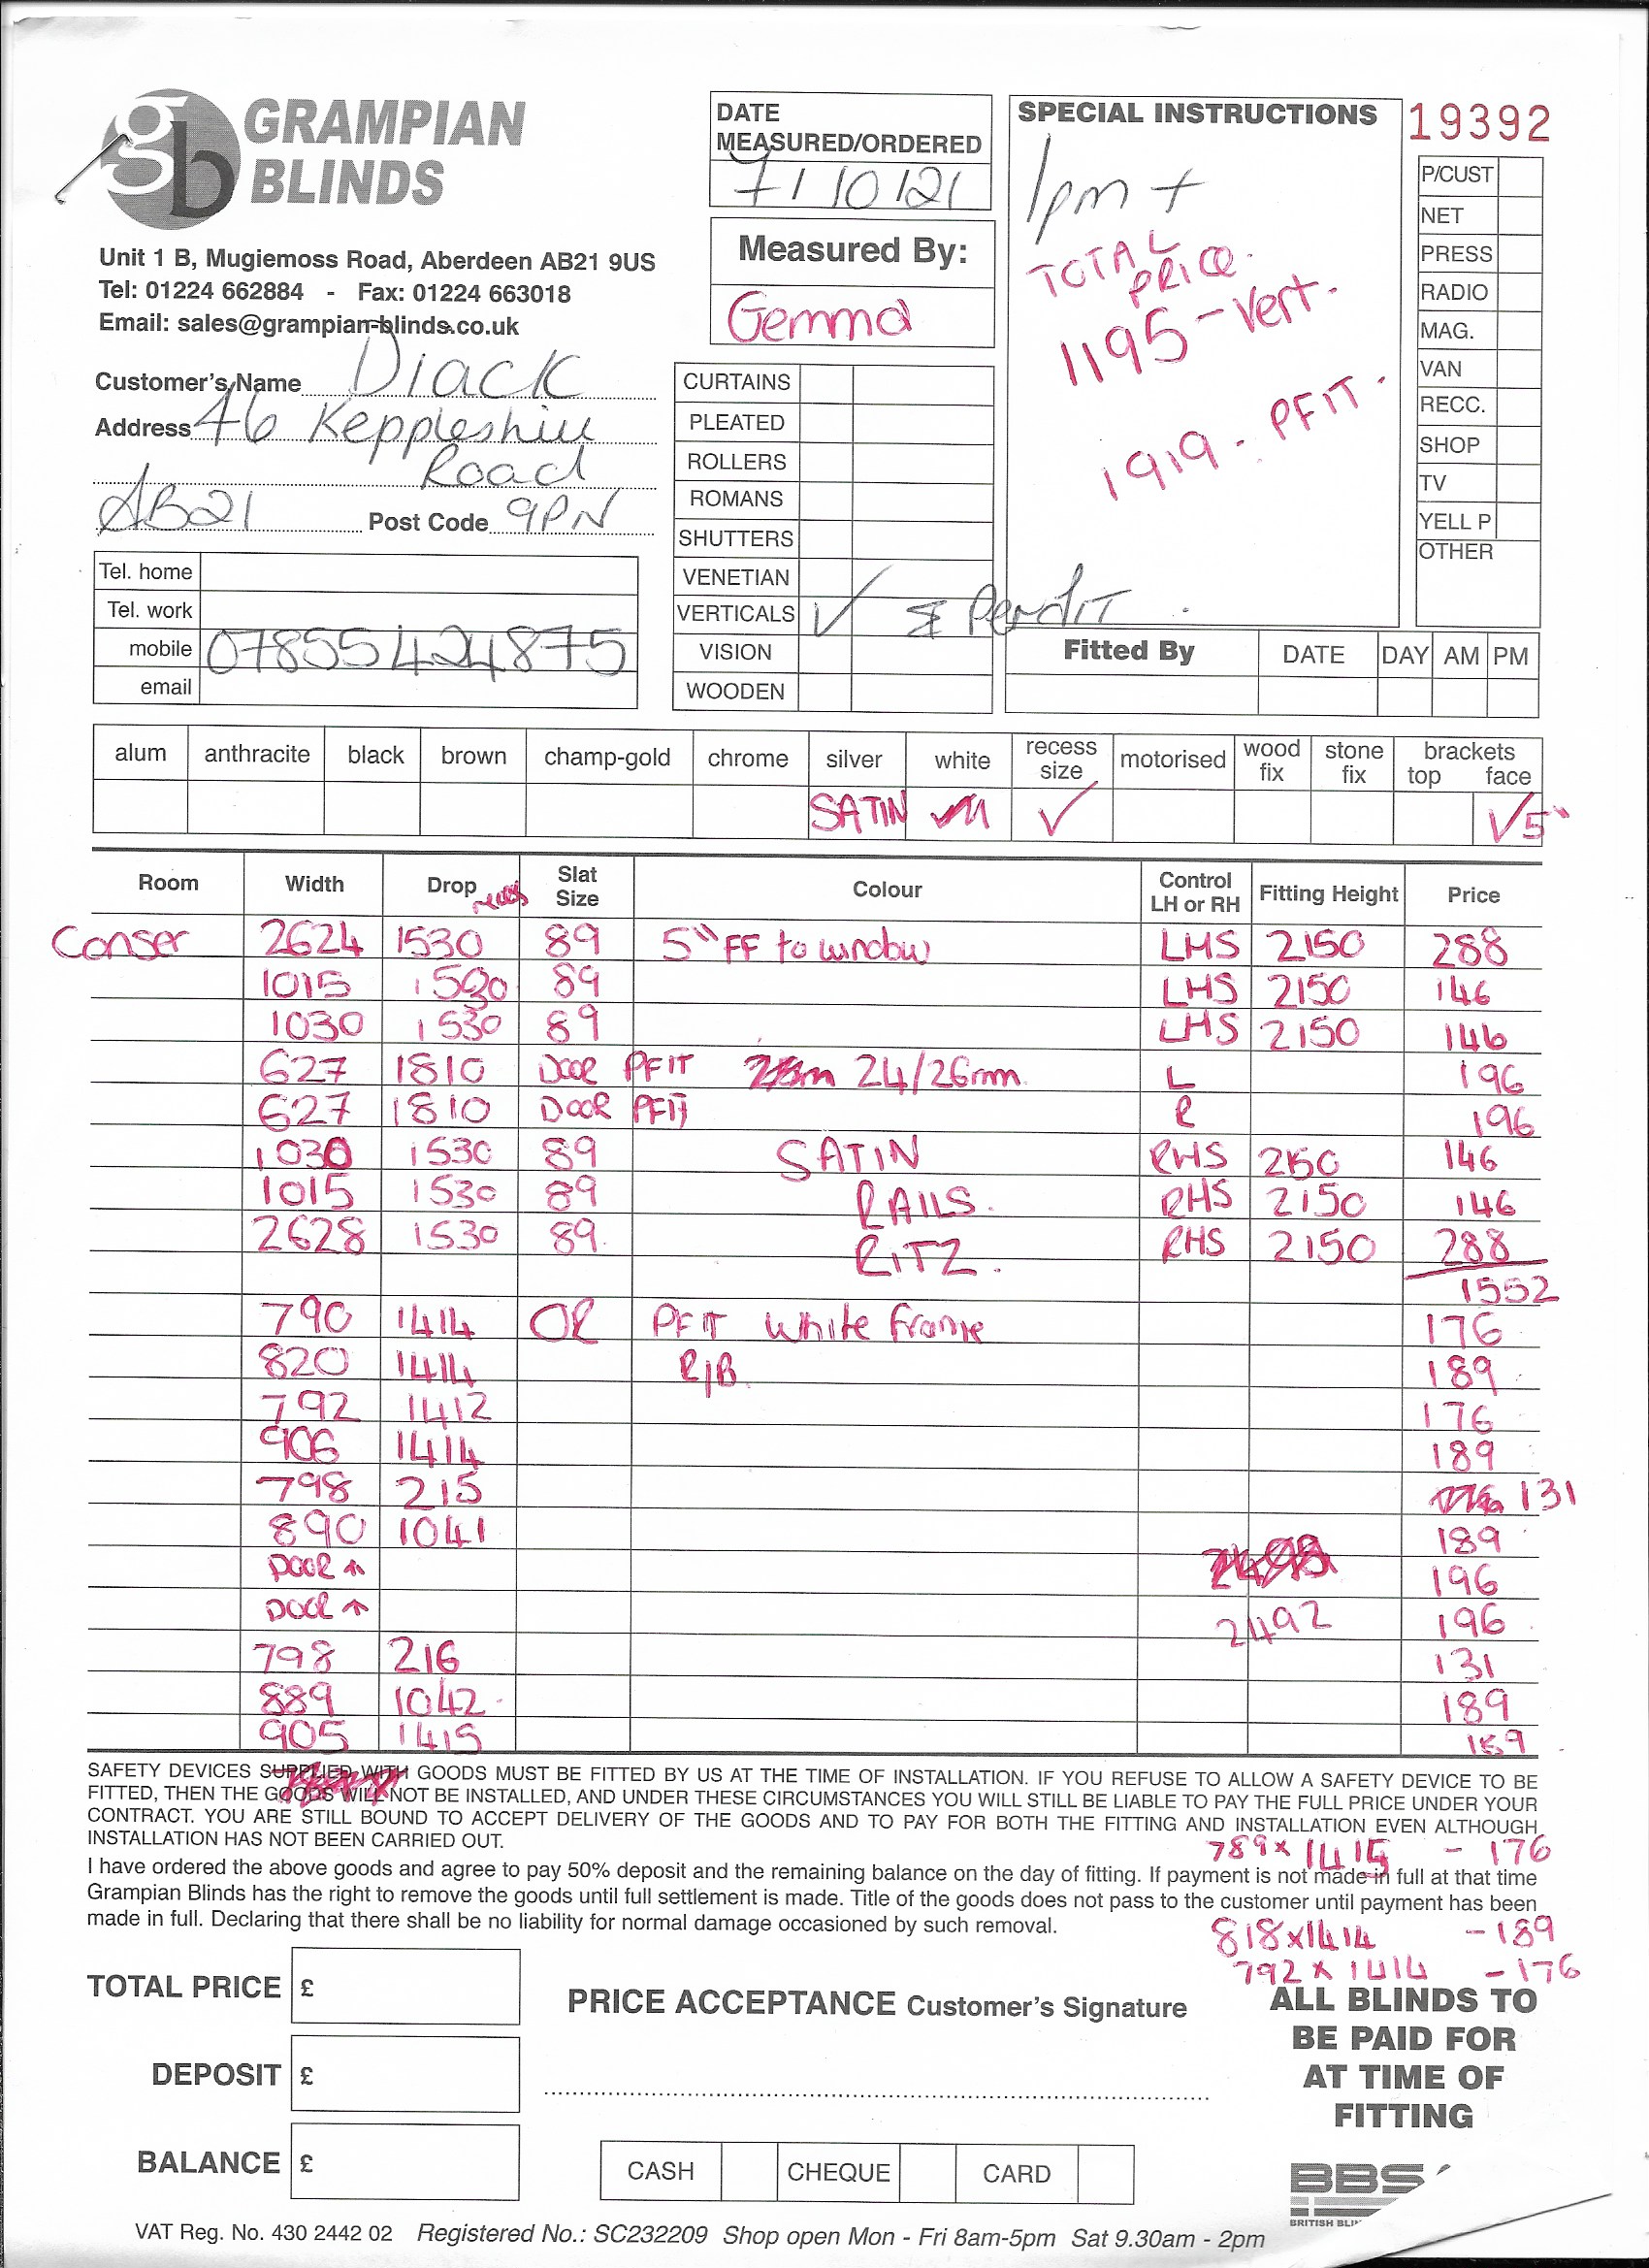 GRAMPIAN
BLINDS
Unit 1 B, Mugiemoss Road, Aberdeen AB21 9US
Tel: 01224 662884 - Fax: 01224 663018
Email: sales@grampian-blinds.co.uk
Customer's Name Diack
Address 46 Keppleshill
Road
AB21 Post Code 9PN
Tel. home
Tel. work
mobile 07855424875
email
DATE
MEASURED/ORDERED
7/10/21
Measured By:
Gemma
CURTAINS
PLEATED
ROLLERS
ROMANS
SHUTTERS
VENETIAN
VERTICALS ✓ & Perfit
VISION
WOODEN
SPECIAL INSTRUCTIONS
1pm +
TOTAL
PRICE.
1195 - Vert.
1919 - PFIT.
19392
P/CUST
NET
PRESS
RADIO
MAG.
VAN
RECC.
SHOP
TV
YELL P
OTHER
Fitted By DATE DAY AM PM
alum anthracite black brown champ-gold chrome silver white recess size motorised wood fix stone fix brackets top face
SATIN ✓ ✓5"
Room Width Drop Slat Size Colour Control LH or RH Fitting Height Price
Conser 2624 1530 89 5" FF to window LHS 2150 288
1015 1530 89 LHS 2150 146
1030 1530 89 LHS 2150 146
627 1810 DOOR PFIT 24/26mm L 196
627 1810 DOOR PFIT R 196
1030 1530 89 SATIN RHS 2150 146
1015 1530 89 RAILS. RHS 2150 146
2628 1530 89. RITZ. RHS 2150 288
1552
790 1414 OR PFIT White Frame 176
820 1414 R/B 189
792 1412 176
906 1414 189
798 215 131
890 1041 189
DOOR ↑ 196
DOOR ↑ 2492 196
798 216 131
889 1042 189
905 1415 189
SAFETY DEVICES SUPPLIED WITH GOODS MUST BE FITTED BY US AT THE TIME OF INSTALLATION. IF YOU REFUSE TO ALLOW A SAFETY DEVICE TO BE
FITTED, THEN THE GOODS WILL NOT BE INSTALLED, AND UNDER THESE CIRCUMSTANCES YOU WILL STILL BE LIABLE TO PAY THE FULL PRICE UNDER YOUR
CONTRACT. YOU ARE STILL BOUND TO ACCEPT DELIVERY OF THE GOODS AND TO PAY FOR BOTH THE FITTING AND INSTALLATION EVEN ALTHOUGH
INSTALLATION HAS NOT BEEN CARRIED OUT.
789 x 1415 - 176
I have ordered the above goods and agree to pay 50% deposit and the remaining balance on the day of fitting. If payment is not made in full at that time
Grampian Blinds has the right to remove the goods until full settlement is made. Title of the goods does not pass to the customer until payment has been
made in full. Declaring that there shall be no liability for normal damage occasioned by such removal.
818 x 1414 - 189
792 x 1414 - 176
TOTAL PRICE £
DEPOSIT £
BALANCE £
PRICE ACCEPTANCE Customer's Signature
CASH CHEQUE CARD
ALL BLINDS TO
BE PAID FOR
AT TIME OF
FITTING
BBS
VAT Reg. No. 430 2442 02 Registered No.: SC232209 Shop open Mon - Fri 8am-5pm Sat 9.30am - 2pm